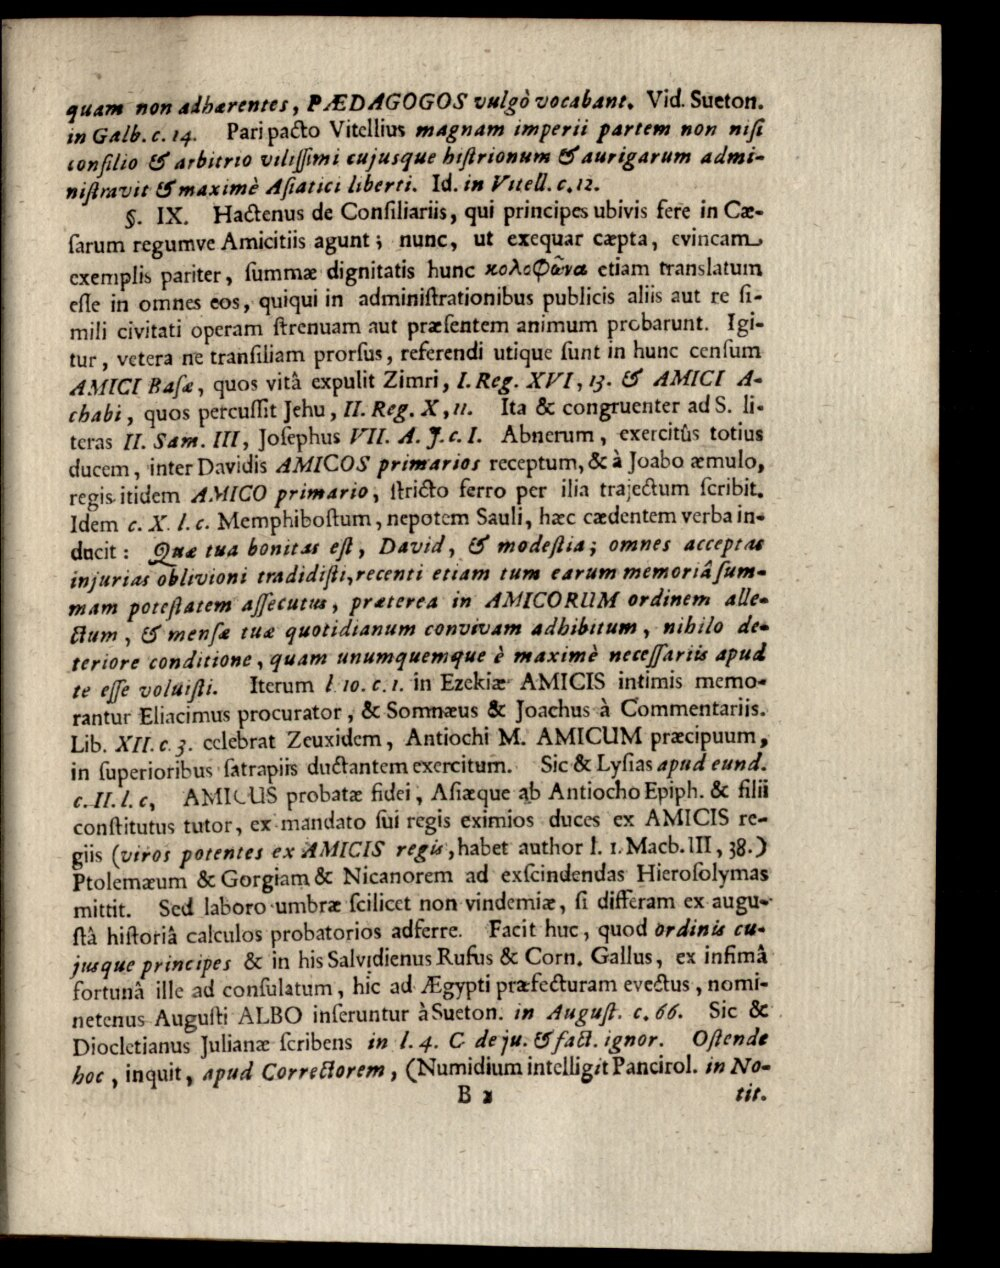 quam non adhærentes, PÆDAGOGOS vulgò vocabant. Vid. Sueton.
in Galb. c. 14. Pari pacto Vitellius magnam imperii partem non niſi
conſilio & arbitrio viliſſimi cujusque hiſtrionum & aurigarum admi-
niſtravit & maximè Aſiatici liberti. Id. in Vitell. c. 12.
§. IX. Hactenus de Conſiliariis, qui principes ubivis fere in Cæ-
ſarum regumve Amicitiis agunt; nunc, ut exequar cæpta, evincam
exemplis pariter, ſummæ dignitatis hunc κολοφῶνα etiam translatum
eſſe in omnes eos, quiqui in adminiſtrationibus publicis aliis aut re ſi-
mili civitati operam ſtrenuam aut præſentem animum probarunt. Igi-
tur, vetera ne tranſiliam prorſus, referendi utique ſunt in hunc cenſum
AMICI Baſæ, quos vitâ expulit Zimri, I. Reg. XVI, 13. & AMICI A-
chabi, quos percuſſit Jehu, II. Reg. X, 11. Ita & congruenter ad S. li-
teras II. Sam. III, Joſephus VII. A. J. c. I. Abnerum, exercitûs totius
ducem, inter Davidis AMICOS primarios receptum, & à Joabo æmulo,
regis itidem AMICO primario, ſtricto ferro per ilia trajectum ſcribit.
Idem c. X. l. c. Memphiboſtum, nepotem Sauli, hæc cædentem verba in-
ducit: Quæ tua bonitas eſt, David, & modeſtia; omnes acceptas
injurias oblivioni tradidiſti, recenti etiam tum earum memoriâ ſum-
mam poteſtatem aſſecutus, præterea in AMICORUM ordinem alle-
ctum, & menſæ tuæ quotidianum convivam adhibitum, nihilo de-
teriore conditione, quam unumquemque è maximè neceſſariis apud
te eſſe voluiſti. Iterum l. 10. c. 1. in Ezekiæ AMICIS intimis memo-
rantur Eliacimus procurator, & Somnæus & Joachus à Commentariis.
Lib. XII. c. 3. celebrat Zeuxidem, Antiochi M. AMICUM præcipuum,
in ſuperioribus ſatrapiis ductantem exercitum. Sic & Lyſias apud eund.
c. II. l. c, AMICUS probatæ fidei, Aſiæque ab Antiocho Epiph. & filii
conſtitutus tutor, ex mandato ſui regis eximios duces ex AMICIS re-
giis (viros potentes ex AMICIS regis, habet author l. 1. Macb. III, 38.)
Ptolemæum & Gorgiam & Nicanorem ad exſcindendas Hieroſolymas
mittit. Sed laboro umbræ ſcilicet non vindemiæ, ſi differam ex augu-
ſtâ hiſtoriâ calculos probatorios adferre. Facit huc, quod ordinis cu-
jusque principes & in his Salvidienus Rufus & Corn. Gallus, ex infimâ
fortunâ ille ad conſulatum, hic ad Ægypti præfecturam evectus, nomi-
netenus Auguſti ALBO inſeruntur à Sueton. in Auguſt. c. 66. Sic &
Diocletianus Julianæ ſcribens in l. 4. C de ju. & fact. ignor. Oſtende
hoc, inquit, apud Correctorem, (Numidium intelligit Pancirol. in No-
B 2 tit.